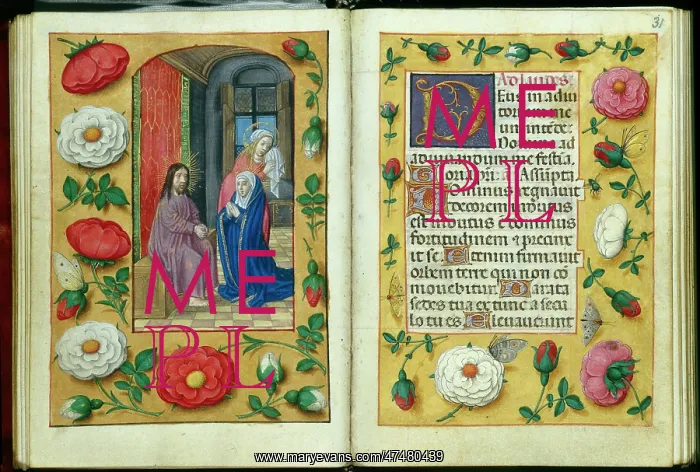 ME
PL
31
Ad laudes
Deus in adiu
torium me
um intende.
Domine ad
adiuuandum me festina.
Gloria pri. ā Assūpta
Dominus regnauit
decorem indutus
est indutus ē dominus
fortitudinem ⁊ precinx
it se. Etenim firmauit
orbem terre qui non cō
mouebitur. Parata
sedes tua ex tunc a secu
lo tu es. Eleuauerunt
ME
PL
www.maryevans.com/47480439